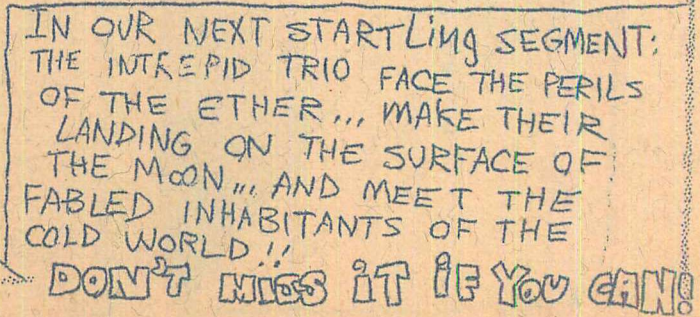 IN OUR NEXT STARTLing SEGMENT:
THE INTREPID TRIO FACE THE PERILS
OF THE ETHER... MAKE THEIR
LANDING ON THE SURFACE OF
THE MOON... AND MEET THE
FABLED INHABITANTS OF THE
COLD WORLD!!
DON'T MISS IT IF YOU CAN!